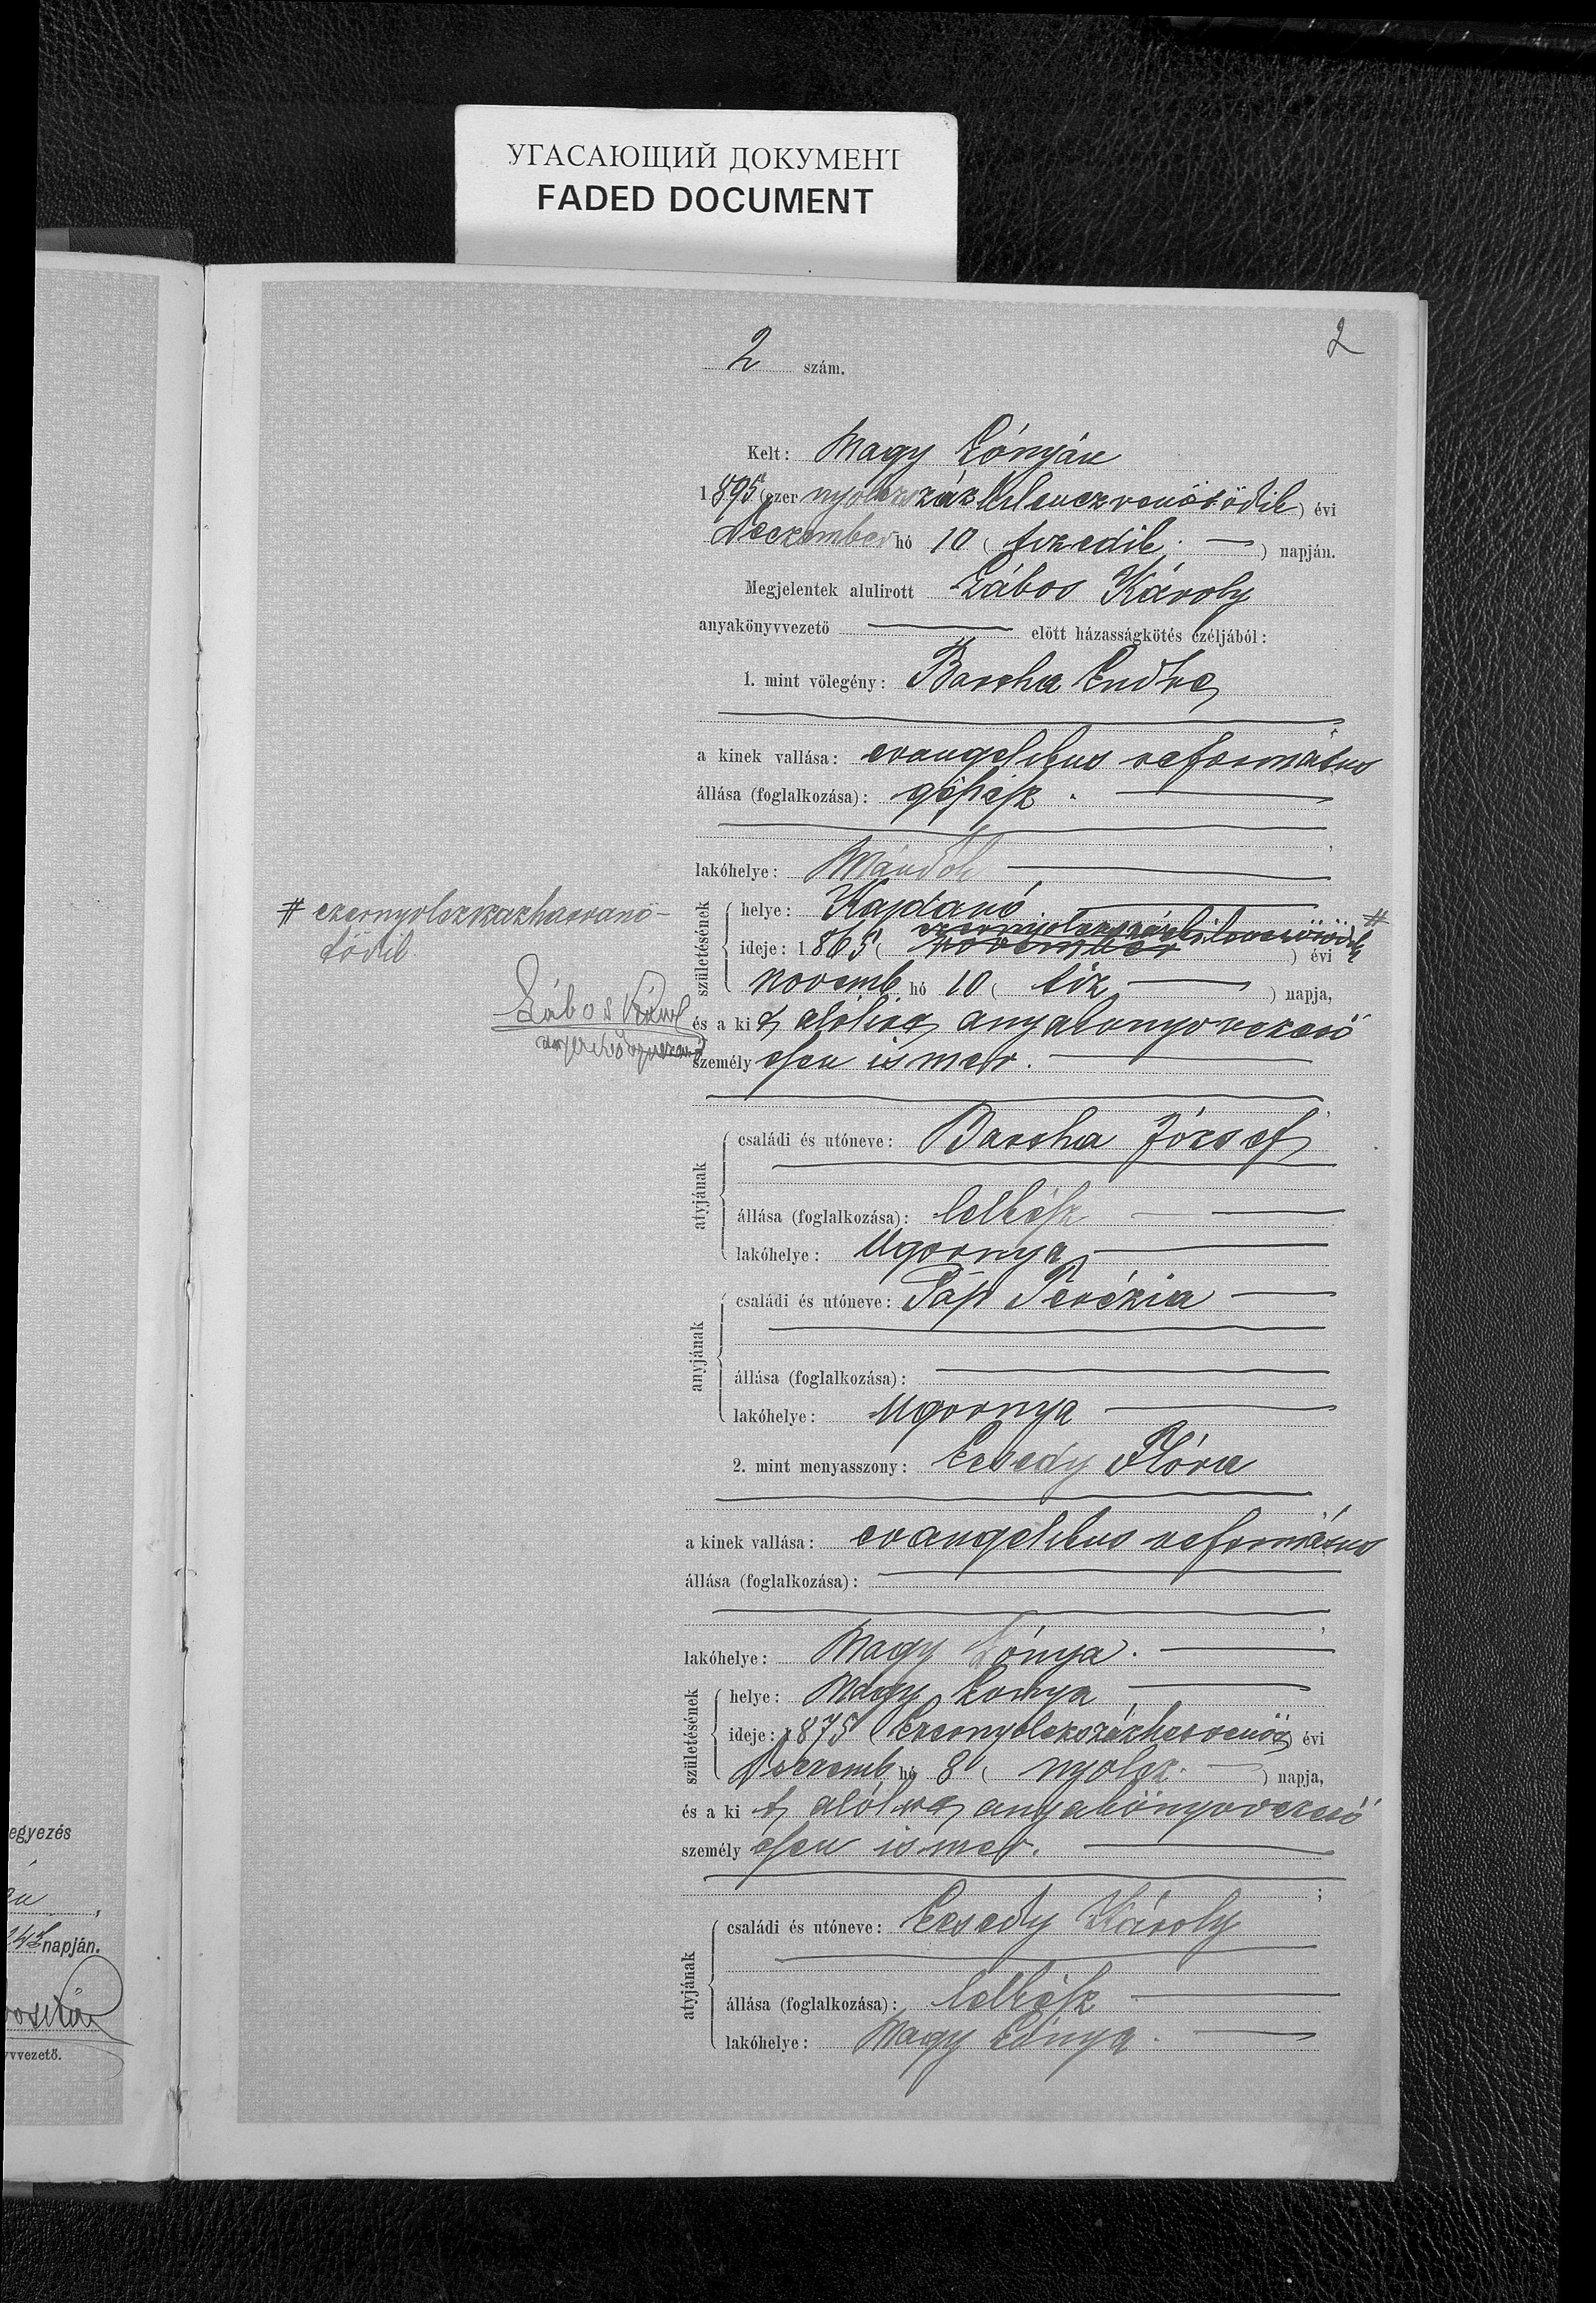 УГАСАЮЩИЙ ДОКУМЕНТ
FADED DOCUMENT
2
2 szám.
Kelt: Nagy Lónyán
1895 (ezer nyolczszázkilenczvenötödik) évi
Deczember hó 10 (tizedik) napján.
Megjelentek alulirott Lábos Károly
anyakönyvvezető előtt házasságkötés czéljából:
1. mint völegény: Barcha Endre
a kinek vallása: evangelikus református
állása (foglalkozása): gépész
lakóhelye: Mándok
születésének
helye: Kajdanó
ideje: 1865 ( ezernyolczszáz november ) évi #
novemb. hó 10 ( tíz ) napja,
# ezernyolczszázhatvanö-
tödik
Lábos Károly
és a ki t alólirt anyakönyvvezető
személy esen ismer.
atyjának
családi és utóneve: Barcha József
állása (foglalkozása): lelkész
lakóhelye: Ugornya
anyjának
családi és utóneve: Páp Terézia
állása (foglalkozása):
lakóhelye: Ugornya
2. mint menyasszony: Ecsedy Flóra
a kinek vallása: evangelikus református
állása (foglalkozása):
lakóhelye: Nagy Lónya.
születésének
helye: Nagy Lonya
ideje: 1875 (Ezernyolczszázhetvenöt) évi
Deczemb. hó 8 ( nyolcz ) napja,
és a ki t alólirt anyakönyvvezető
személy esen ismer.
atyjának
családi és utóneve: Ecsedy Károly
állása (foglalkozása): lelkész
lakóhelye: Nagy Lónya
egyezés
napján.
yvvezető.